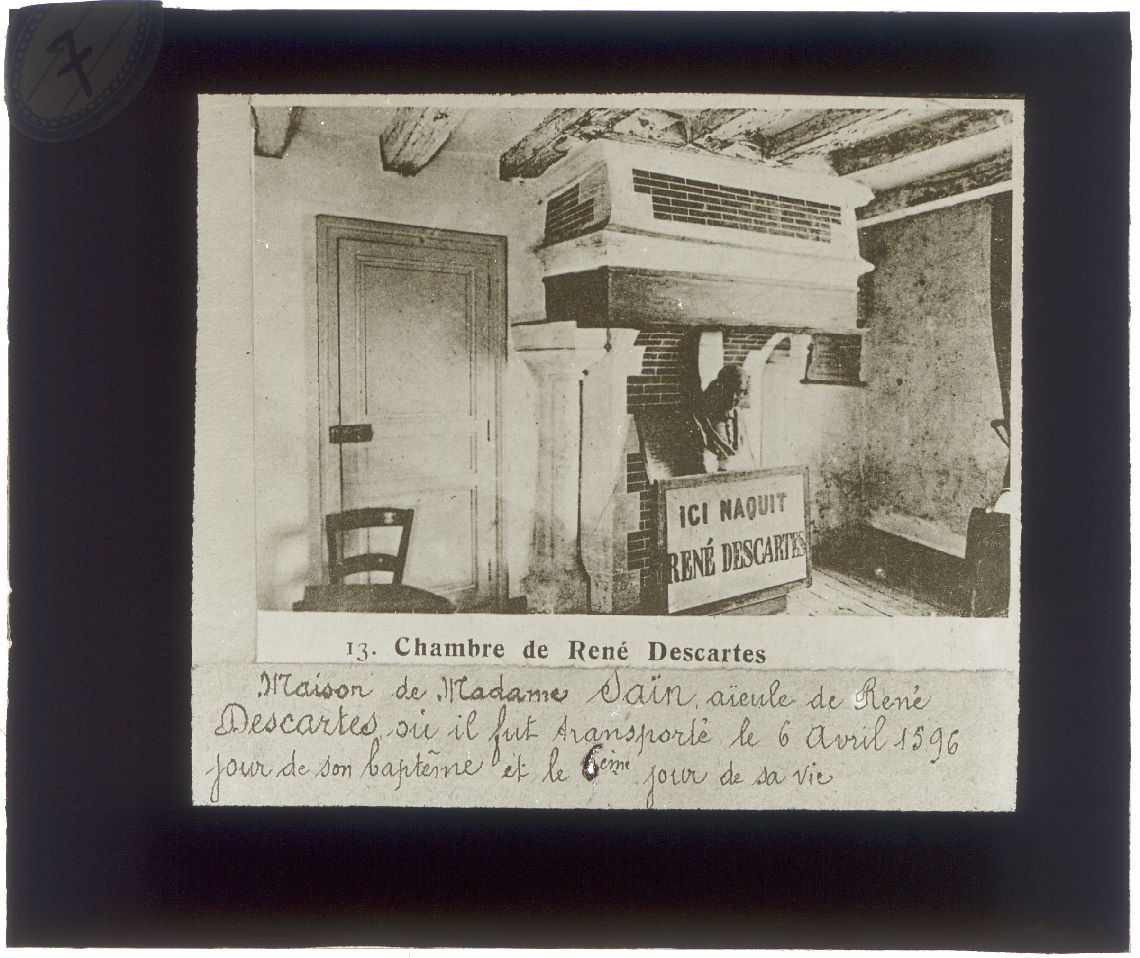 7
ICI NAQUIT
RENÉ DESCARTES
13. Chambre de René Descartes
Maison de Madame Saïn, aïeule de René
Descartes, où il fut transporté le 6 Avril 1596
jour de son baptême et le 6ème jour de sa vie